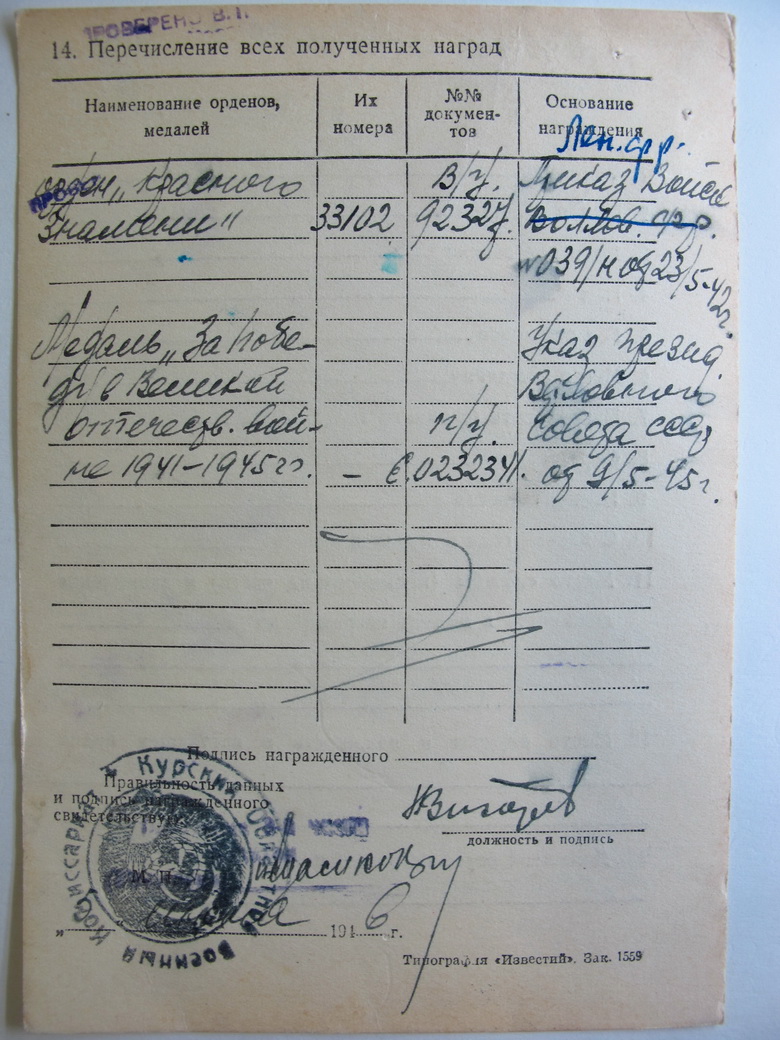 ПРОВЕРЕНО В.
14. Перечисление всех полученных наград
Наименование орденов, медалей
Их номера
№№ документов
Основание награждения
Лен. фр.
орден „Красного В/у. Приказ Войск
Знамени" 33102 92327. Волхов. фр.
№039/н от 23/5-42г.
Медаль „За побе- Указ презид.
ду в Великой Верховного
отечеств. вой- п/у. Совета СССР
не 1941-1945гг. – 0232341. от 9/5-45г.
Подпись награжденного
Правильность данных
и подпись награжденного
свидетельствую:
должность и подпись
М. П.
„ " 1946 г.
Курский Областной Военный Комиссариат
Типография «Известий». Зак. 1559